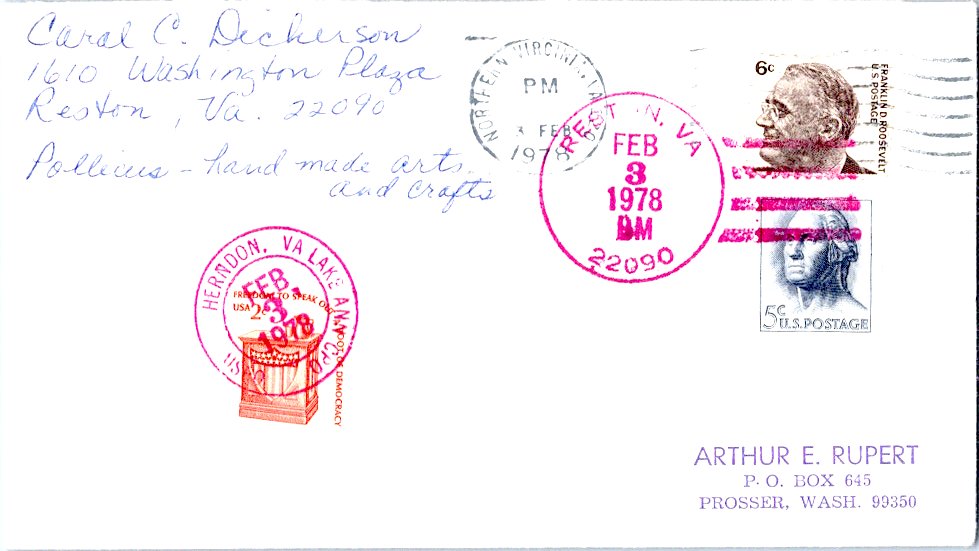 Carol C. Dickerson
1610 Washington Plaza
Reston, Va. 22090
- hand made arts
and crafts
NORTHERN VIRGINIA,
PM
3 FEB
1978
REST N, VA
FEB
3
1978
PM
22090
6c
FRANKLIN D ROOSEVELT
U.S. POSTAGE
5c
U.S. POSTAGE
HERNDON, VA LAKE ANN CPO
FEB
3
1978
USPS
FREEDOM TO SPEAK OUT
USA 2c
ROOT OF DEMOCRACY
ARTHUR E. RUPERT
P. O. BOX 645
PROSSER, WASH. 99350